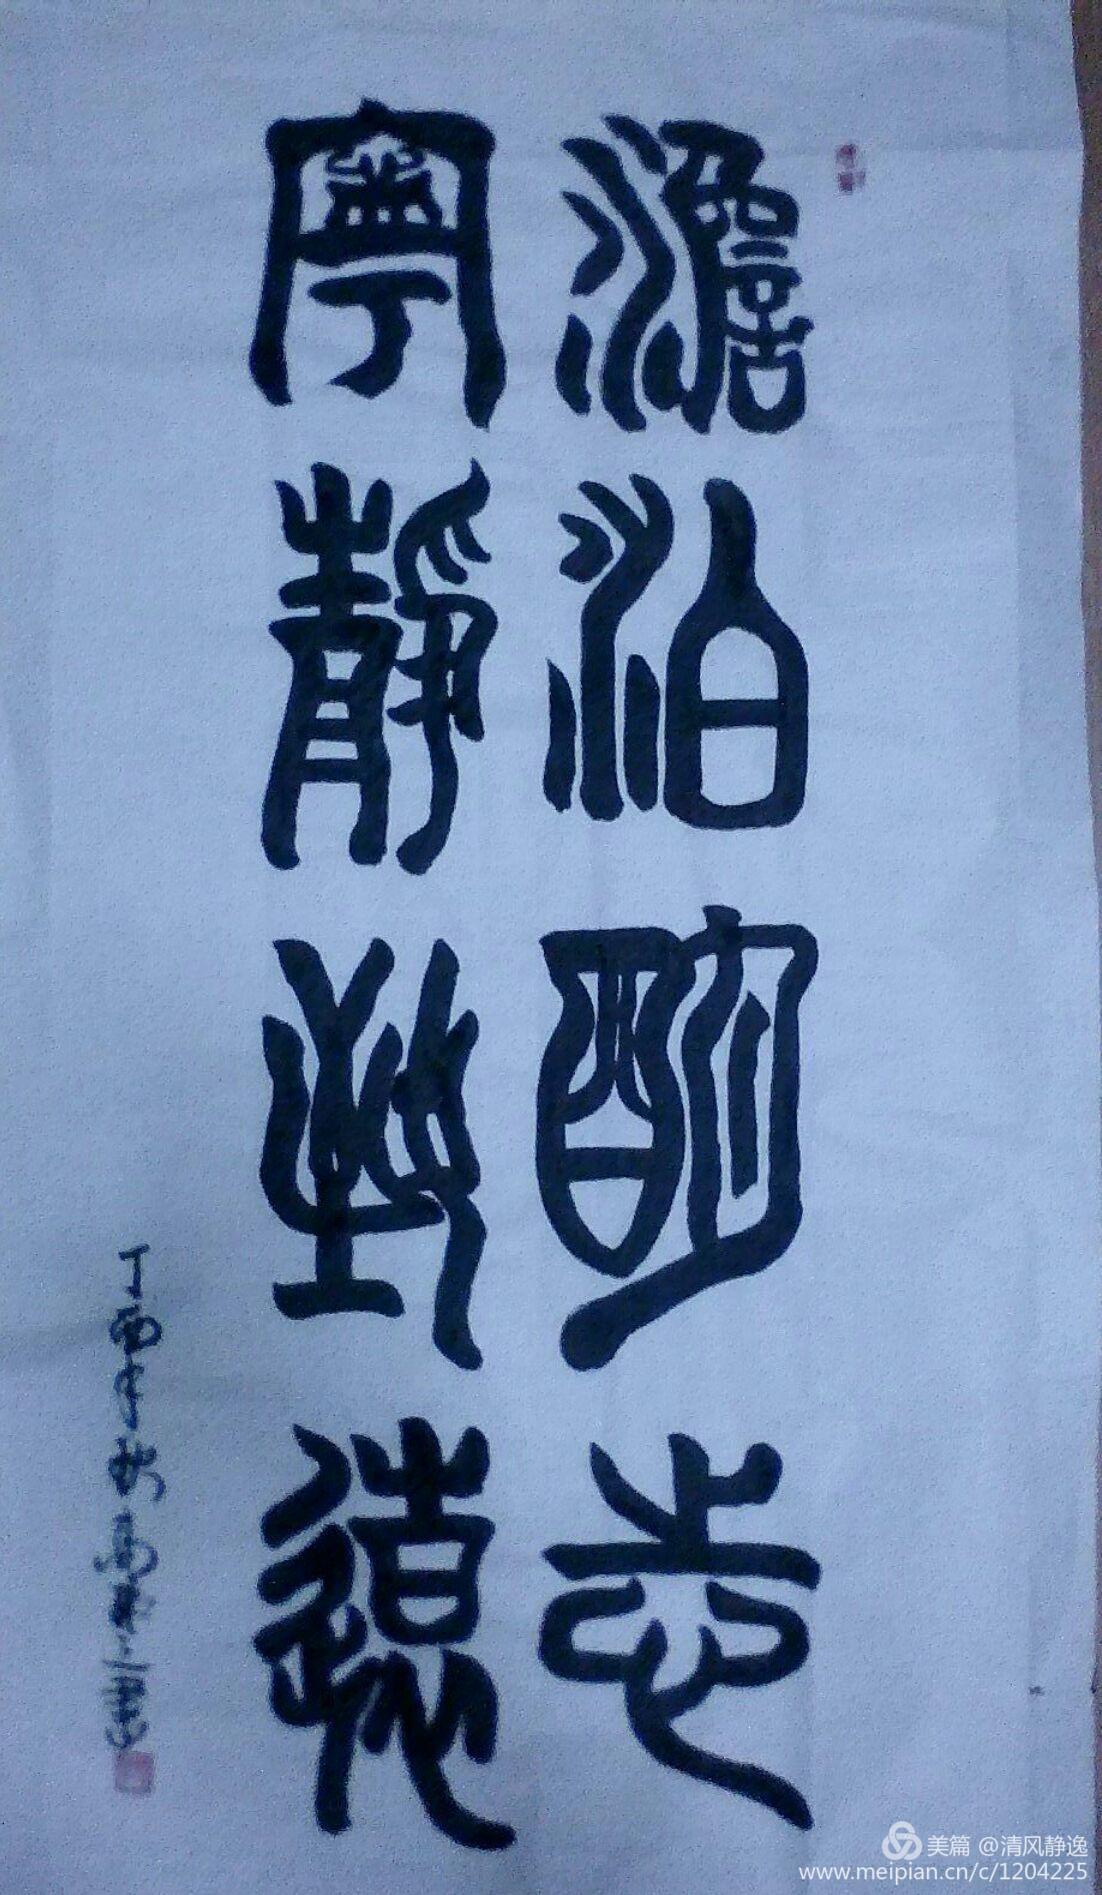 澹泊明志
寧靜致遠
丁酉年
美篇 @清风静逸
www.meipian.cn/c/1204225